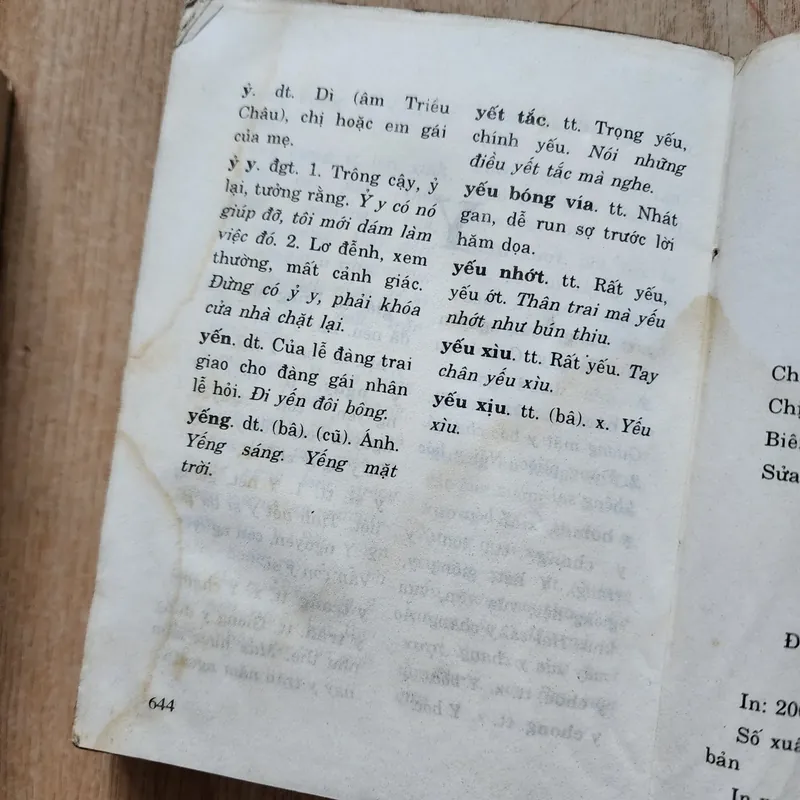 ỷ. dt. Dì (âm Triều
Châu), chị hoặc em gái
của mẹ.
ỷ y. đgt. 1. Trông cậy, ỷ
lại, tưởng rằng. Ỷ y có nó
giúp đỡ, tôi mới dám làm
việc đó. 2. Lơ đễnh, xem
thường, mất cảnh giác.
Đừng có ỷ y, phải khóa
cửa nhà chặt lại.
yến. dt. Của lễ đàng trai
giao cho đàng gái nhân
lễ hỏi. Đi yến đôi bông.
yếng. dt. (bâ). (cũ). Ánh.
Yếng sáng. Yếng mặt
trời.
yết tắc. tt. Trọng yếu,
chính yếu. Nói những
điều yết tắc mà nghe.
yếu bóng vía. tt. Nhát
gan, dễ run sợ trước lời
hăm dọa.
yếu nhớt. tt. Rất yếu,
yếu ớt. Thân trai mà yếu
nhớt như bún thiu.
yếu xìu. tt. Rất yếu. Tay
chân yếu xìu.
yếu xịu. tt. (bâ). x. Yếu
xìu.
644
Biê
Sửa
In: 20
Số xuấ
bản